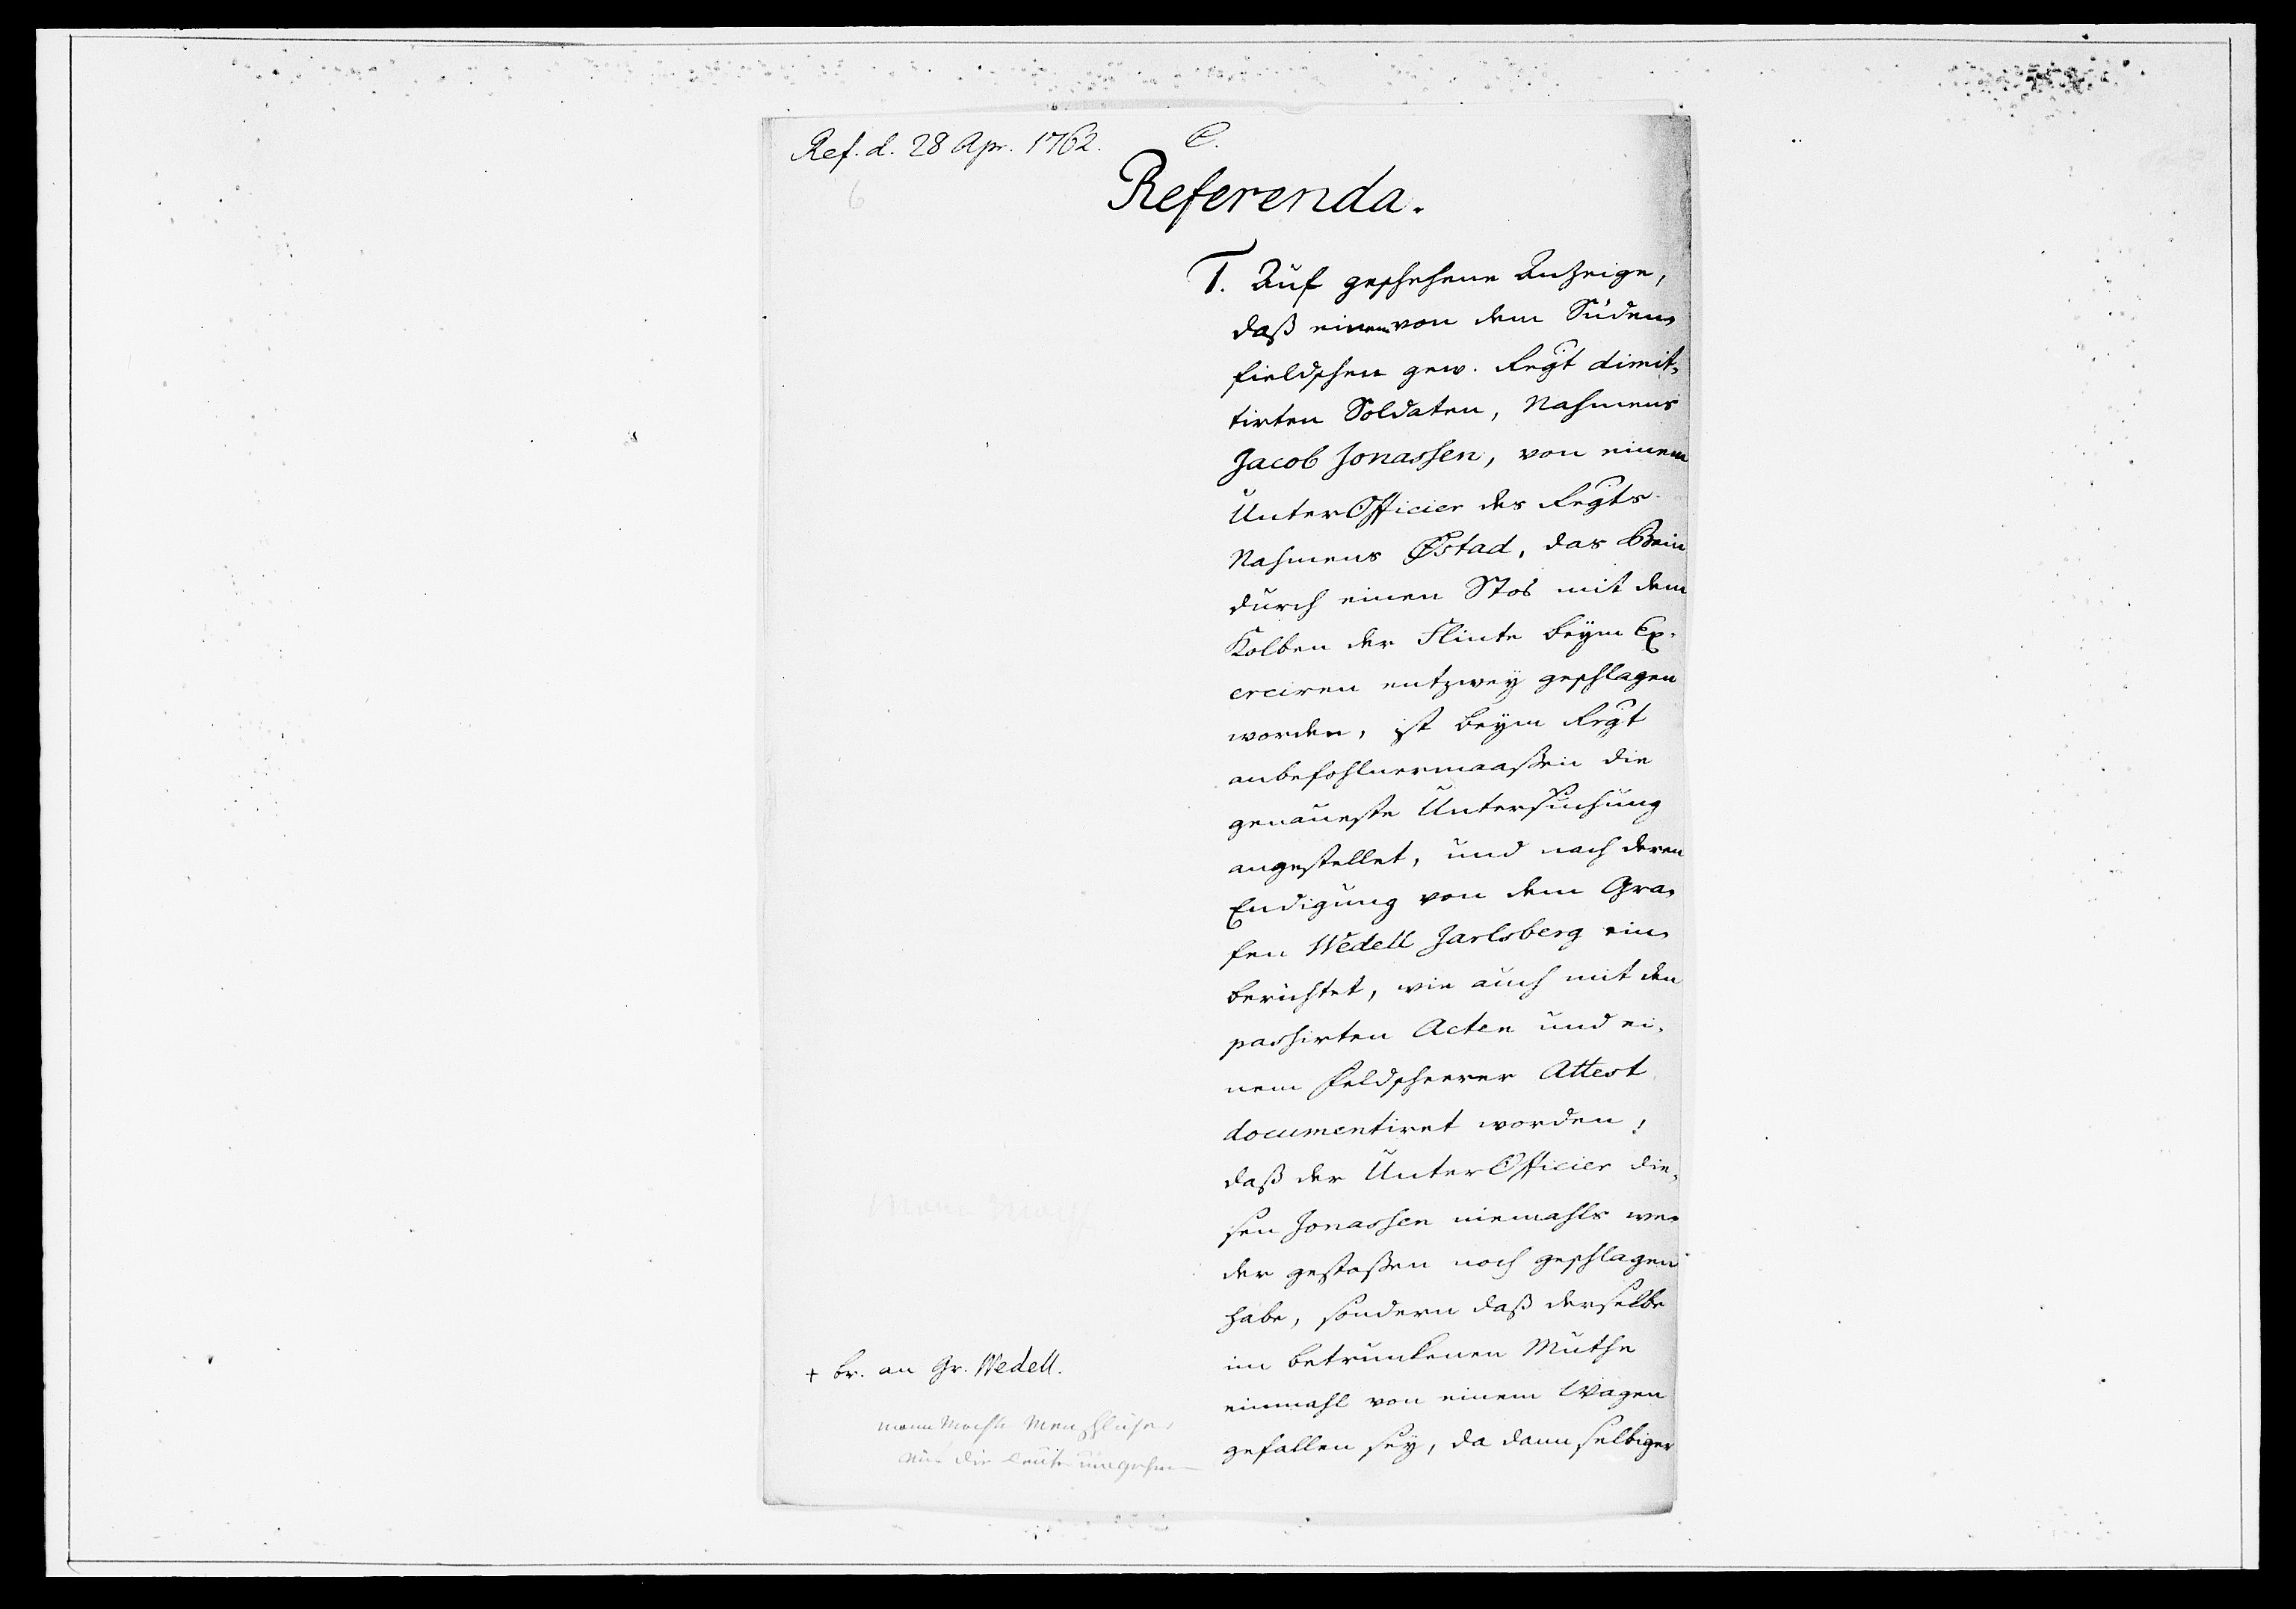 Ref. d. 28 Apr. 1762.
C.
6
Referenda.
1. Auf geschehene Anzeige,
daß einem von dem Süden,
fieldschen gew. Regt dimit,
tirten Soldaten, Nahmens
Jacob Jonassen, von einem
UnterOfficier des Regts
Nahmens Østad, das Bein
durch einen Stos mit dem
Kolben der Flinte beym Ex,
erciren entzwey geschlagen
worden, ist beym Regt
anbefohlnermaaßen die
genaueste Untersuchung
angestellet, und nach deren
Endigung von dem Gra,
fen Wedell Jarlsberg ein,
berichtet, wie auch mit den
passirten Acten und ei,
nem Feldscheerer Attest
documentiret worden,
daß der UnterOfficier die,
sen Jonassen niemahls we,
der gestoßen noch geschlagen
habe, sondern daß derselbe
im betrunkenen Muthe
einmahl von einem Wagen
gefallen sey, da dann selbiger
+ br. an Gr. Wedell.
mit die Leute umgehen